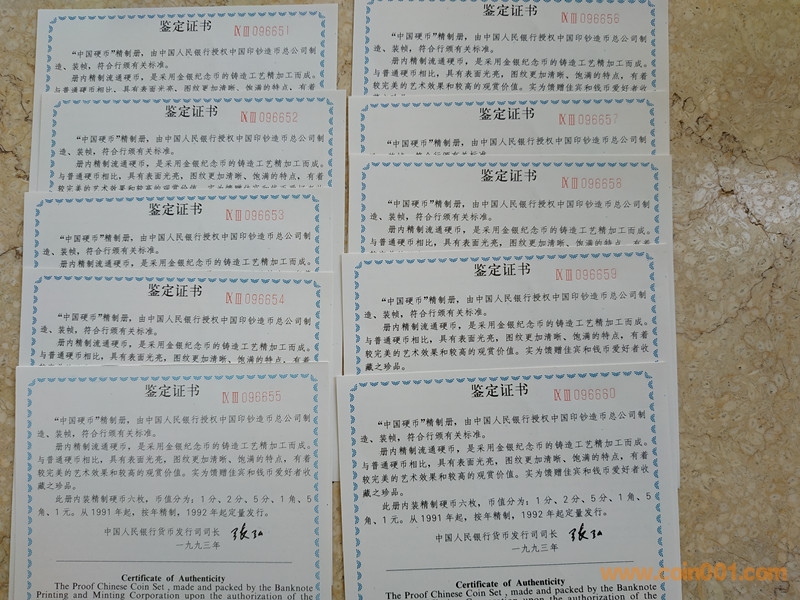 鉴定证书
Ⅸ Ⅲ 096651
“中国硬币”精制册，由中国人民银行授权中国印钞造币总公司制
造、装帧，符合行颁有关标准。
册内精制流通硬币，是采用金银纪念币的铸造工艺精加工而成。
与普通硬币相比，具有表面光亮，图纹更加清晰、饱满的特点，有着
鉴定证书
Ⅸ Ⅲ 096652
“中国硬币”精制册，由中国人民银行授权中国印钞造币总公司制
造、装帧，符合行颁有关标准。
册内精制流通硬币，是采用金银纪念币的铸造工艺精加工而成。
与普通硬币相比，具有表面光亮，图纹更加清晰、饱满的特点，有着
鉴定证书
Ⅸ Ⅲ 096653
“中国硬币”精制册，由中国人民银行授权中国印钞造币总公司制
造、装帧，符合行颁有关标准。
册内精制流通硬币，是采用金银纪念币的铸造工艺精加工而成。
鉴定证书
Ⅸ Ⅲ 096654
“中国硬币”精制册，由中国人民银行授权中国印钞造币总公司制
造、装帧，符合行颁有关标准。
册内精制流通硬币，是采用金银纪念币的铸造工艺精加工而成。
与普通硬币相比，具有表面光亮，图纹更加清晰、饱满的特点，有着
鉴定证书
Ⅸ Ⅲ 096655
“中国硬币”精制册，由中国人民银行授权中国印钞造币总公司制
造、装帧，符合行颁有关标准。
册内精制流通硬币，是采用金银纪念币的铸造工艺精加工而成。
与普通硬币相比，具有表面光亮，图纹更加清晰、饱满的特点，有着
较完美的艺术效果和较高的观赏价值。实为馈赠佳宾和钱币爱好者收
藏之珍品。
此册内装精制硬币六枚，币值分为：1分、2分、5分、1角、5
角、1元。从1991年起，按年精制，1992年起定量发行。
中国人民银行货币发行司司长
一九九三年
Certificate of Authenticity
The Proof Chinese Coin Set , made and packed by the Banknote
Printing and Minting Corporation upon the authorization of the
鉴定证书
Ⅸ Ⅲ 096656
“中国硬币”精制册，由中国人民银行授权中国印钞造币总公司制
造、装帧，符合行颁有关标准。
册内精制流通硬币，是采用金银纪念币的铸造工艺精加工而成。
与普通硬币相比，具有表面光亮，图纹更加清晰、饱满的特点，有着
较完美的艺术效果和较高的观赏价值。实为馈赠佳宾和钱币爱好者收
鉴定证书
Ⅸ Ⅲ 096657
“中国硬币”精制册，由中国人民银行授权中国印钞造币总公司制
鉴定证书
Ⅸ Ⅲ 096658
“中国硬币”精制册，由中国人民银行授权中国印钞造币总公司制
造、装帧，符合行颁有关标准。
册内精制流通硬币，是采用金银纪念币的铸造工艺精加工而成。
与普通硬币相比，具有表面光亮，图纹更加清晰、饱满的特点，有着
鉴定证书
Ⅸ Ⅲ 096659
“中国硬币”精制册，由中国人民银行授权中国印钞造币总公司制
造、装帧，符合行颁有关标准。
册内精制流通硬币，是采用金银纪念币的铸造工艺精加工而成。
与普通硬币相比，具有表面光亮，图纹更加清晰、饱满的特点，有着
较完美的艺术效果和较高的观赏价值。实为馈赠佳宾和钱币爱好者收
藏之珍品。
鉴定证书
Ⅸ Ⅲ 096660
“中国硬币”精制册，由中国人民银行授权中国印钞造币总公司制
造、装帧，符合行颁有关标准。
册内精制流通硬币，是采用金银纪念币的铸造工艺精加工而成。
与普通硬币相比，具有表面光亮，图纹更加清晰、饱满的特点，有着
较完美的艺术效果和较高的观赏价值。实为馈赠佳宾和钱币爱好者收
藏之珍品。
此册内装精制硬币六枚，币值分为：1分、2分、5分、1角、5
角、1元。从1991年起，按年精制，1992年起定量发行。
中国人民银行货币发行司司长
一九九三年
Certificate of Authenticity
The Proof Chinese Coin Set , made and packed by the Banknote
Printing and Minting Corporation upon the authorization of the
www.coin001.com